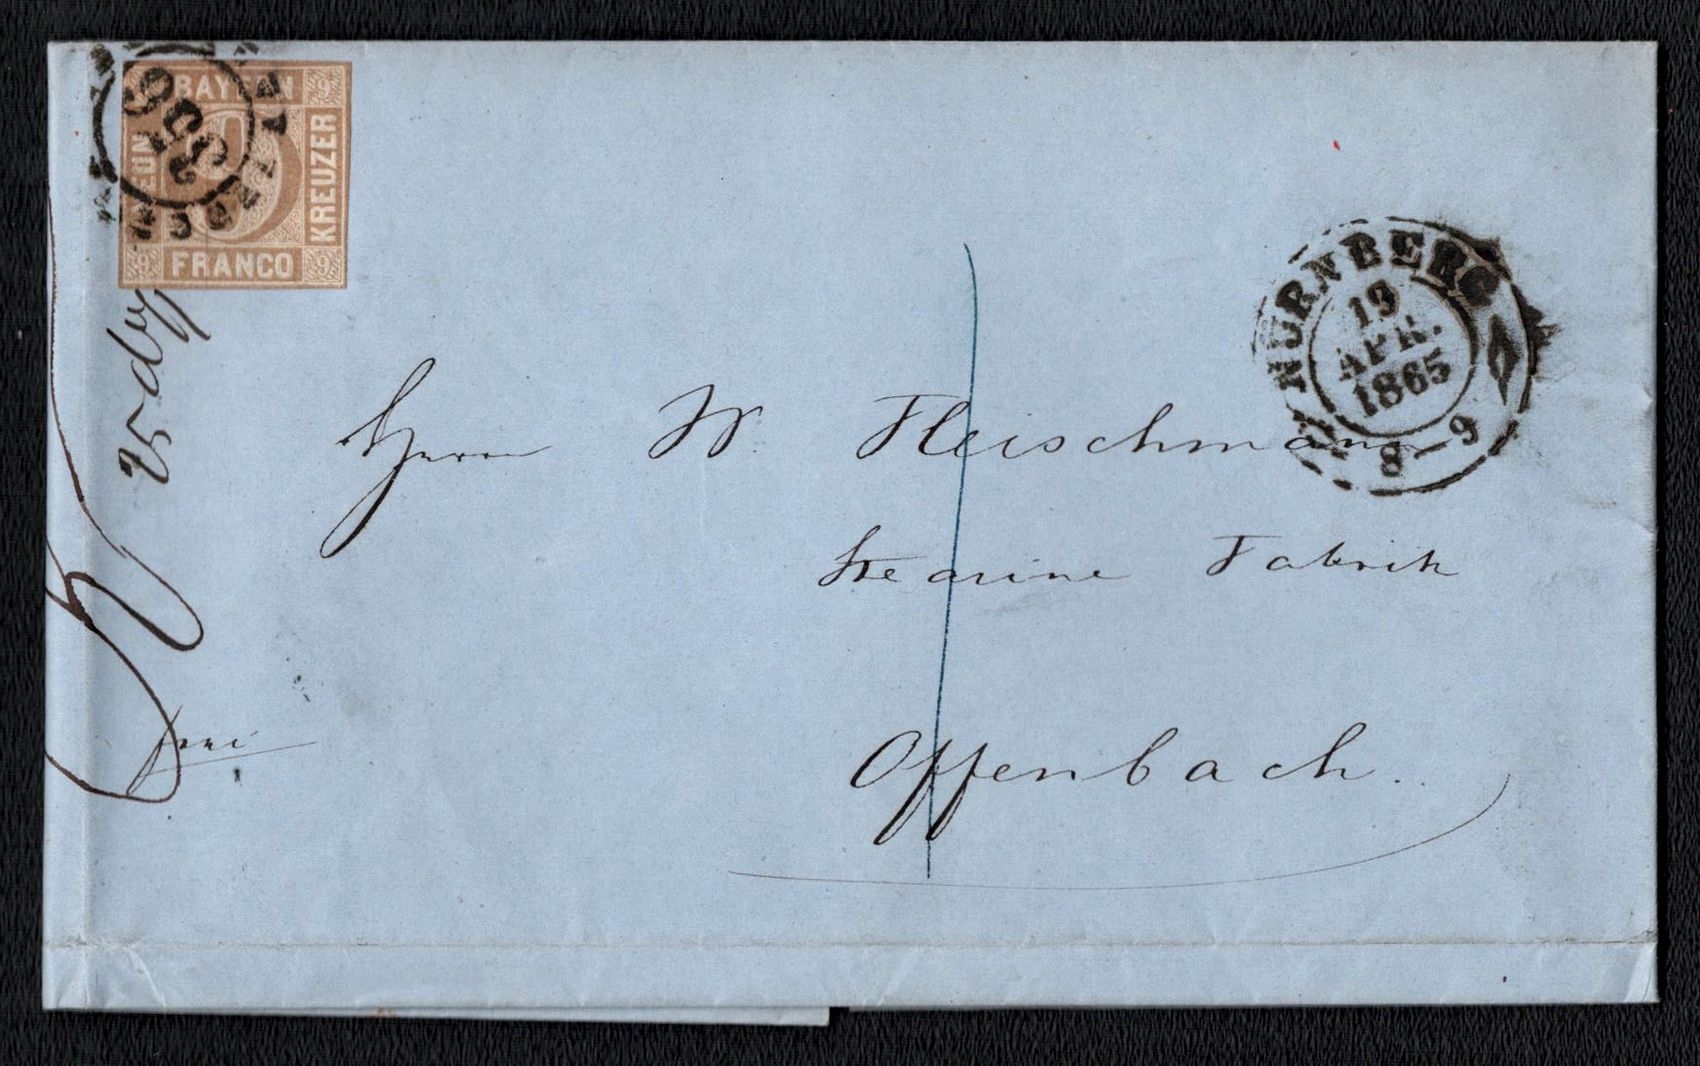 BAYERN
NEUN
KREUZER
FRANCO
9
9
9
356
NÜRNBERG
19
APR.
1865
8–9
Herrn W. Fleischmann
Stearine Fabrik
Offenbach.
frei